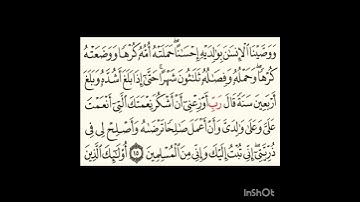 وَوَصَّيْنَا ٱلْإِنسَٰنَ بِوَٰلِدَيْهِ إِحْسَٰنًا ۖ حَمَلَتْهُ أُمُّهُۥ كُرْهًا وَوَضَعَتْهُ
كُرْهًا ۖ وَحَمْلُهُۥ وَفِصَٰلُهُۥ ثَلَٰثُونَ شَهْرًا ۚ حَتَّىٰٓ إِذَا بَلَغَ أَشُدَّهُۥ وَبَلَغَ
أَرْبَعِينَ سَنَةً قَالَ رَبِّ أَوْزِعْنِىٓ أَنْ أَشْكُرَ نِعْمَتَكَ ٱلَّتِىٓ أَنْعَمْتَ
عَلَىَّ وَعَلَىٰ وَٰلِدَىَّ وَأَنْ أَعْمَلَ صَٰلِحًا تَرْضَىٰهُ وَأَصْلِحْ لِى فِى
ذُرِّيَّتِىٓ ۖ إِنِّى تُبْتُ إِلَيْكَ وَإِنِّى مِنَ ٱلْمُسْلِمِينَ ١٥ أُو۟لَٰٓئِكَ ٱلَّذِينَ
InShOt